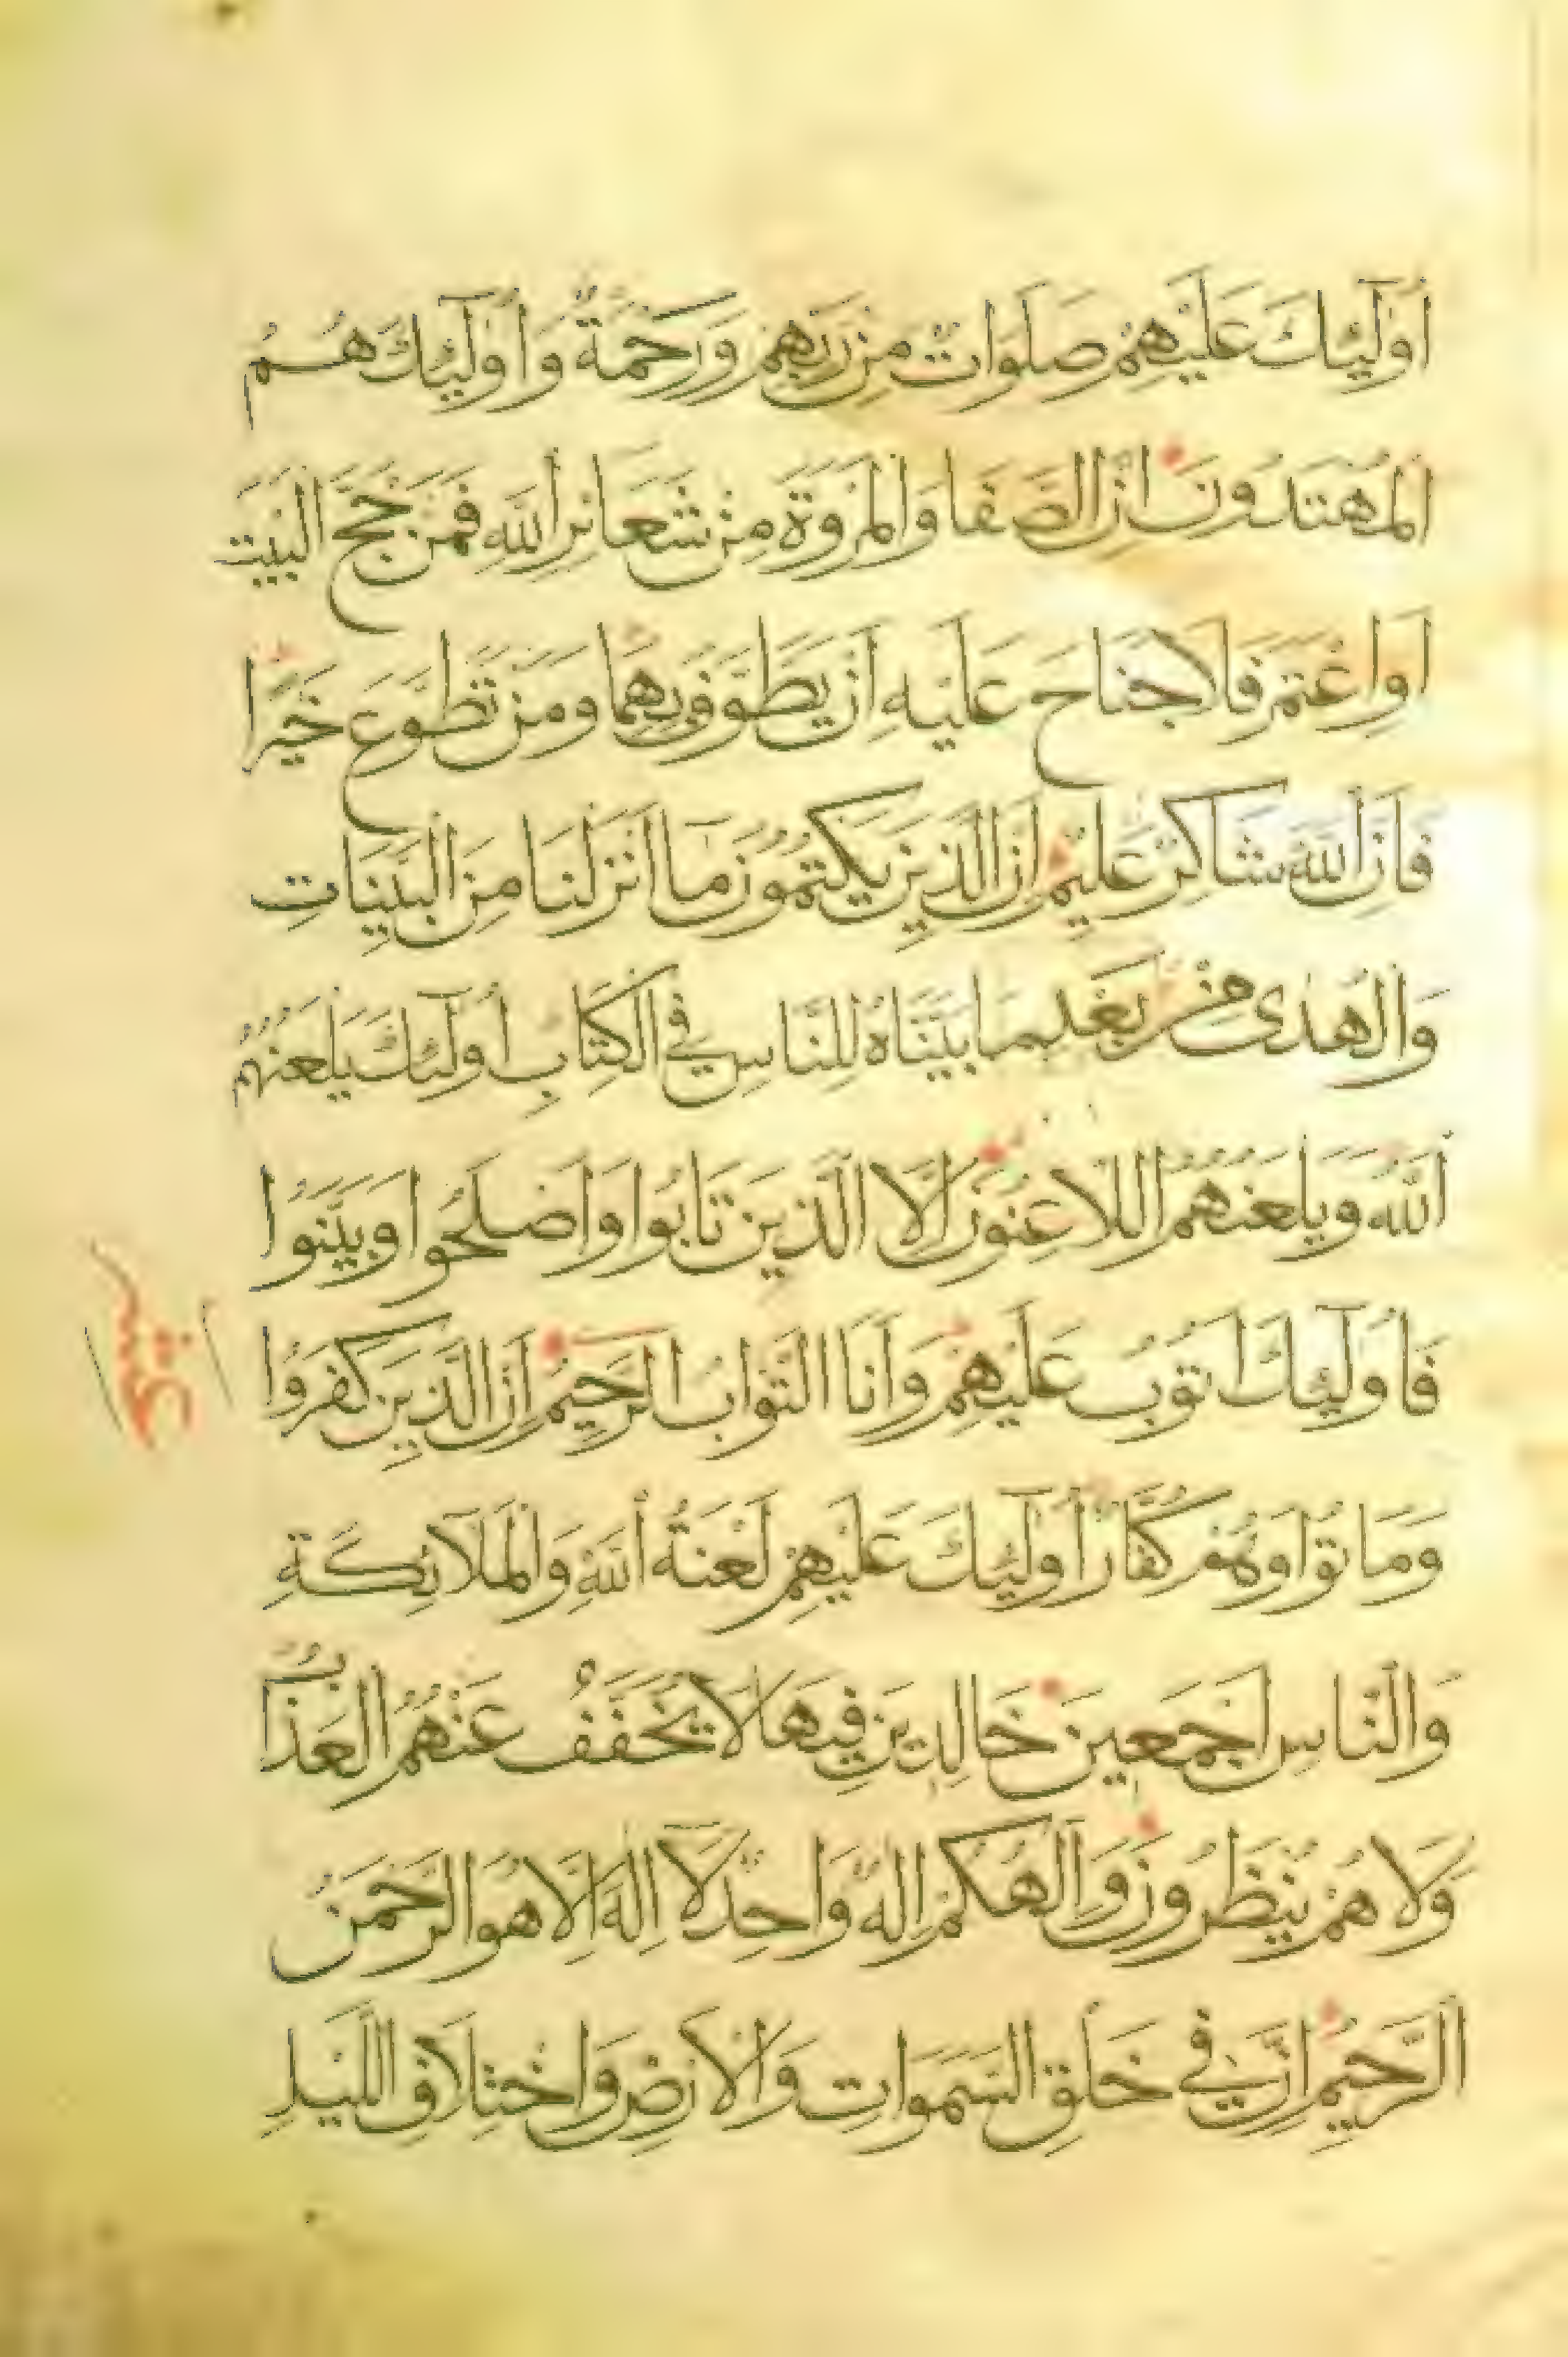 أُولَٰٓئِكَ عَلَيْهِمْ صَلَوَاتٌ مِنْ رَبِّهِمْ وَرَحْمَةٌ وَأُولَٰٓئِكَ هُمُ
الْمُهْتَدُونَ إِنَّ الصَّفَا وَالْمَرْوَةَ مِنْ شَعَائِرِ اللَّهِ فَمَنْ حَجَّ الْبَيْتَ
أَوِ اعْتَمَرَ فَلَا جُنَاحَ عَلَيْهِ أَنْ يَطَّوَّفَ بِهِمَا وَمَنْ تَطَوَّعَ خَيْرًا
فَإِنَّ اللَّهَ شَاكِرٌ عَلِيمٌ إِنَّ الَّذِينَ يَكْتُمُونَ مَا أَنْزَلْنَا مِنَ الْبَيِّنَاتِ
وَالْهُدَى مِنْ بَعْدِ مَا بَيَّنَّاهُ لِلنَّاسِ فِي الْكِتَابِ أُولَٰئِكَ يَلْعَنُهُمُ
اللَّهُ وَيَلْعَنُهُمُ اللَّاعِنُونَ إِلَّا الَّذِينَ تَابُوا وَأَصْلَحُوا وَبَيَّنُوا
فَأُولَٰٓئِكَ أَتُوبُ عَلَيْهِمْ وَأَنَا التَّوَّابُ الرَّحِيمُ إِنَّ الَّذِينَ كَفَرُوا
وَمَاتُوا وَهُمْ كُفَّارٌ أُولَٰٓئِكَ عَلَيْهِمْ لَعْنَةُ اللَّهِ وَالْمَلَآئِكَةِ
وَالنَّاسِ أَجْمَعِينَ خَالِدِينَ فِيهَا لَا يُخَفَّفُ عَنْهُمُ الْعَذَابُ
وَلَا هُمْ يُنْظَرُونَ وَإِلَٰهُكُمْ إِلَٰهٌ وَاحِدٌ لَا إِلَٰهَ إِلَّا هُوَ الرَّحْمَنُ
الرَّحِيمُ إِنَّ فِي خَلْقِ السَّمَوَاتِ وَالْأَرْضِ وَاخْتِلَافِ اللَّيْلِ